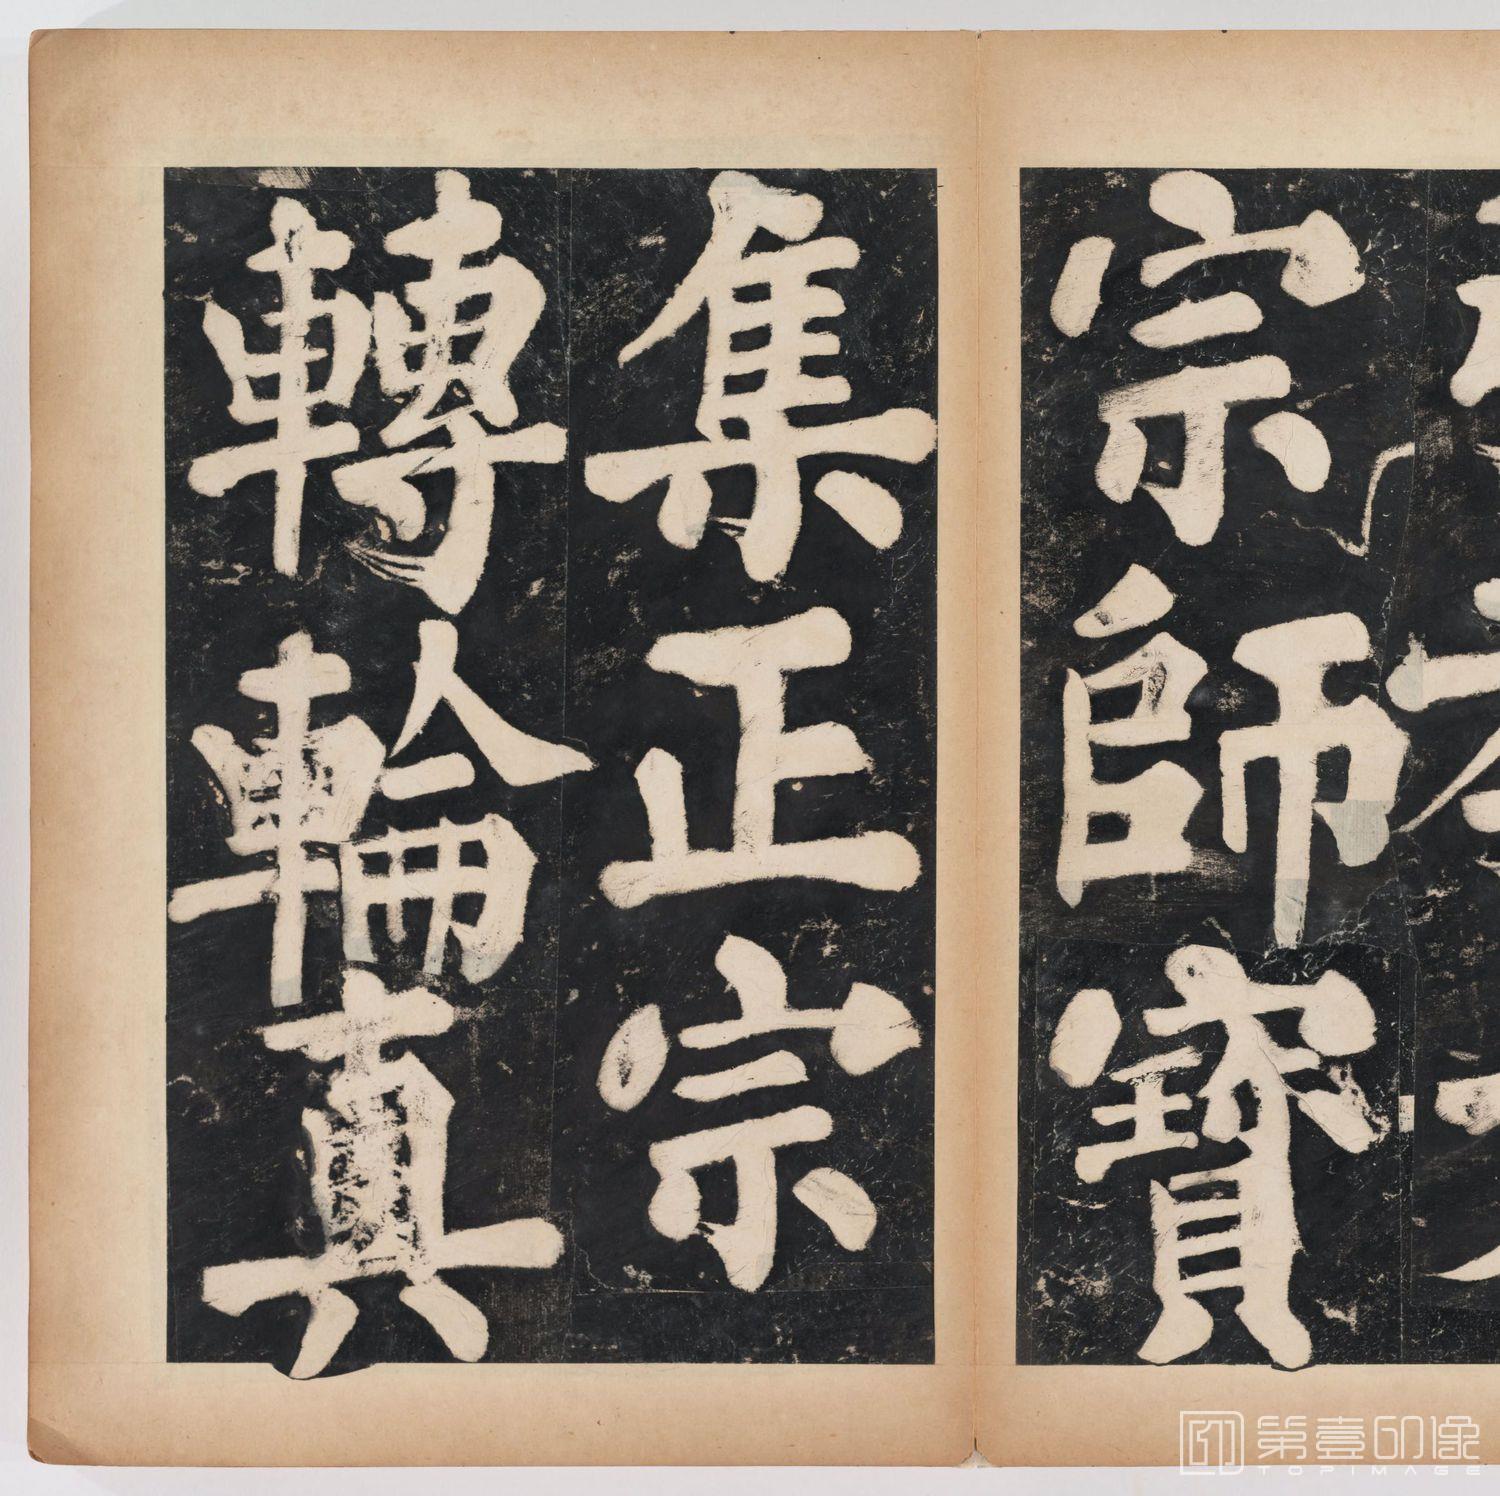 宗師寶
集正宗
轉輪真
第壹印像
TOPIMAGE